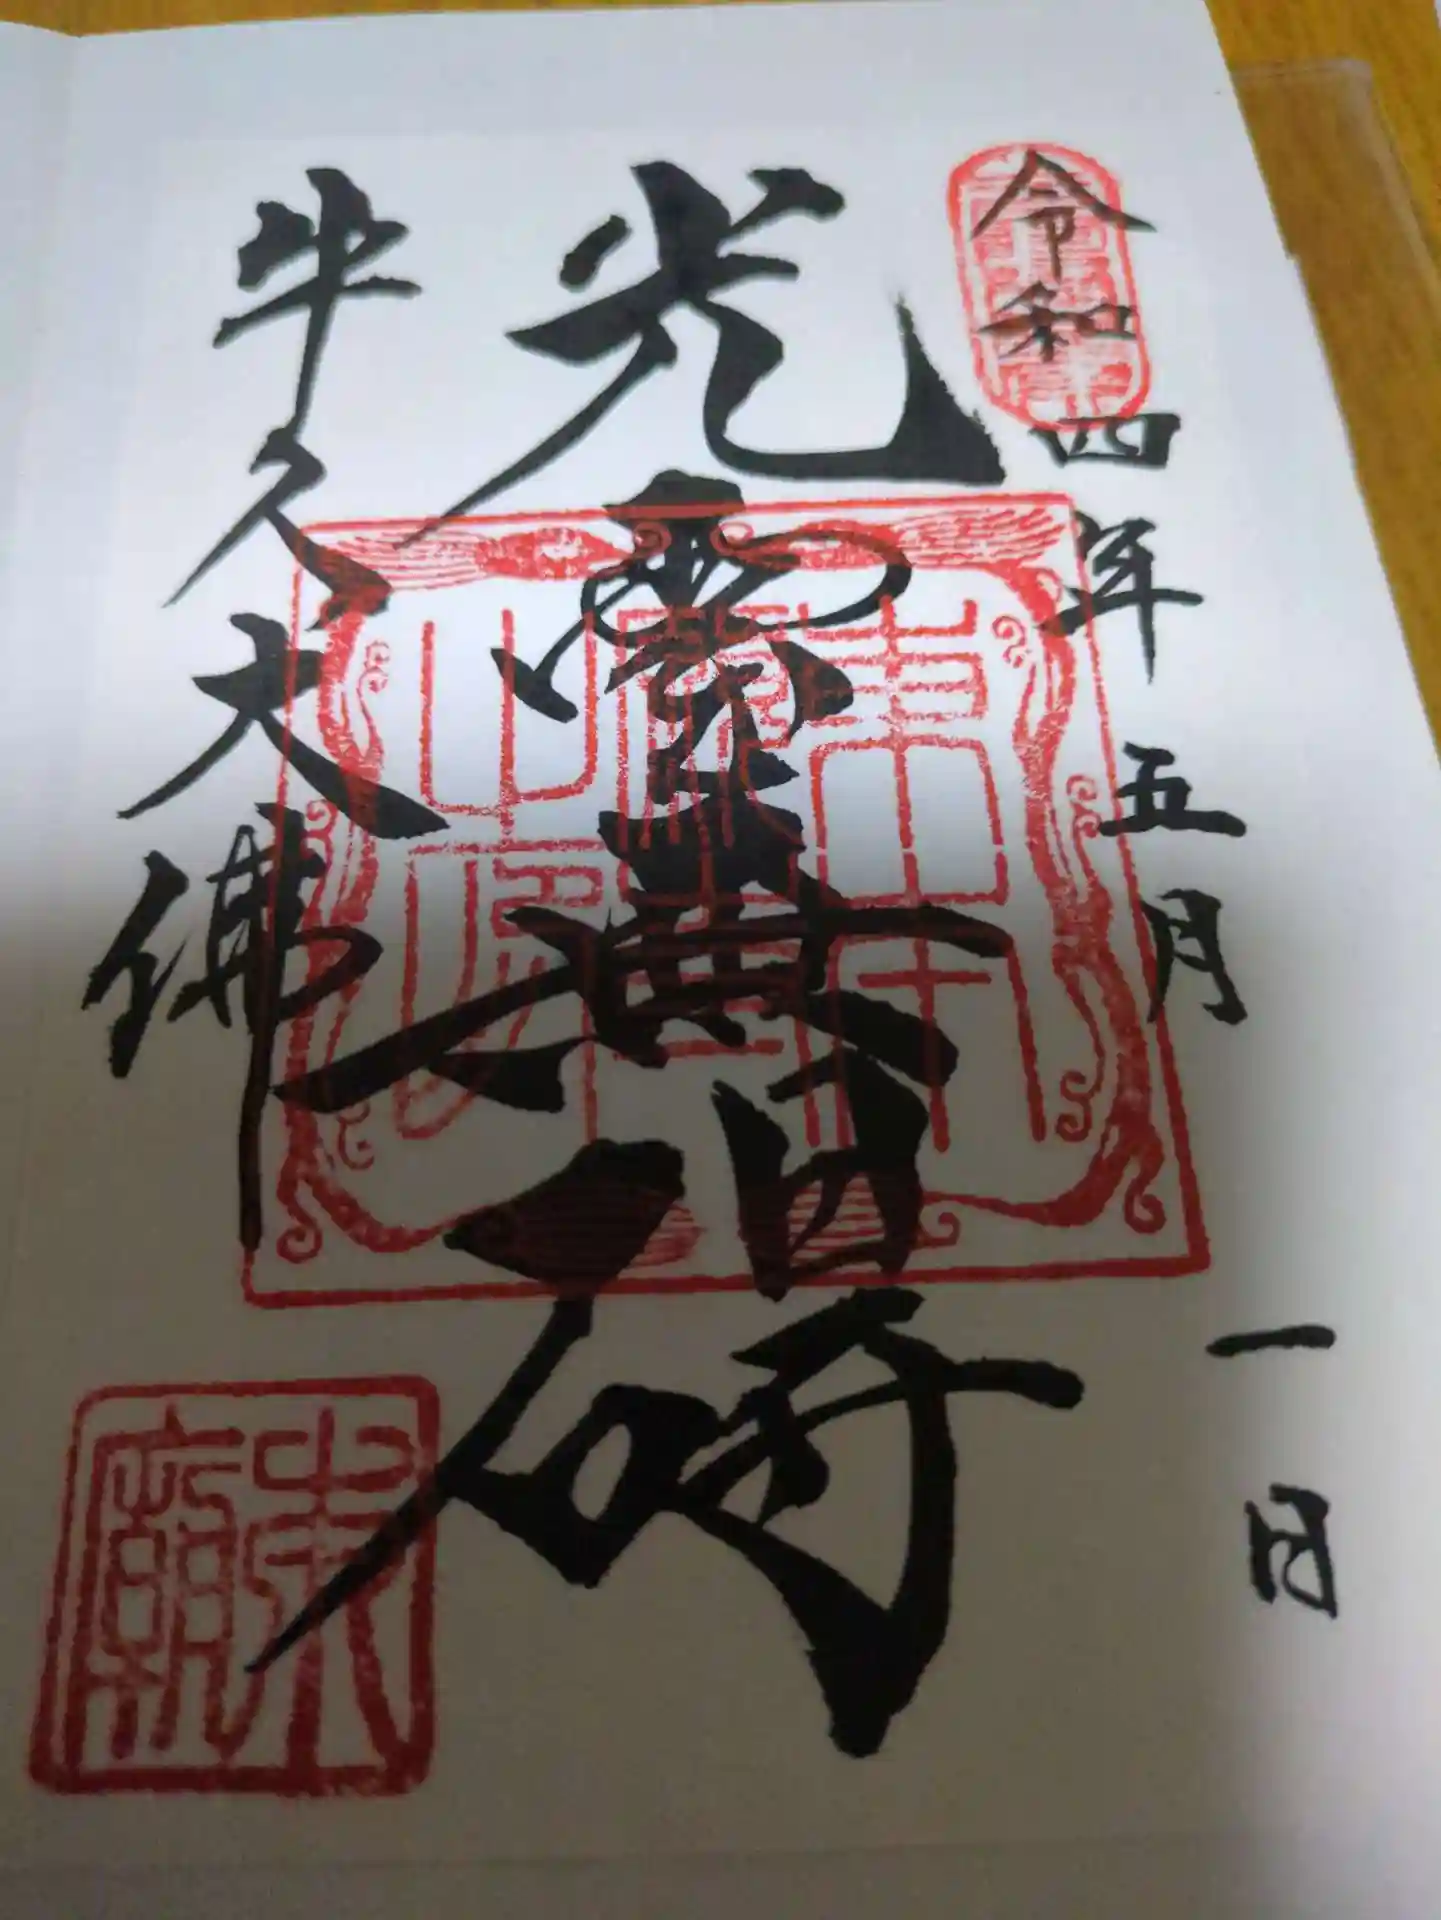 令和四年五月一日
光雲無碍
牛久大佛